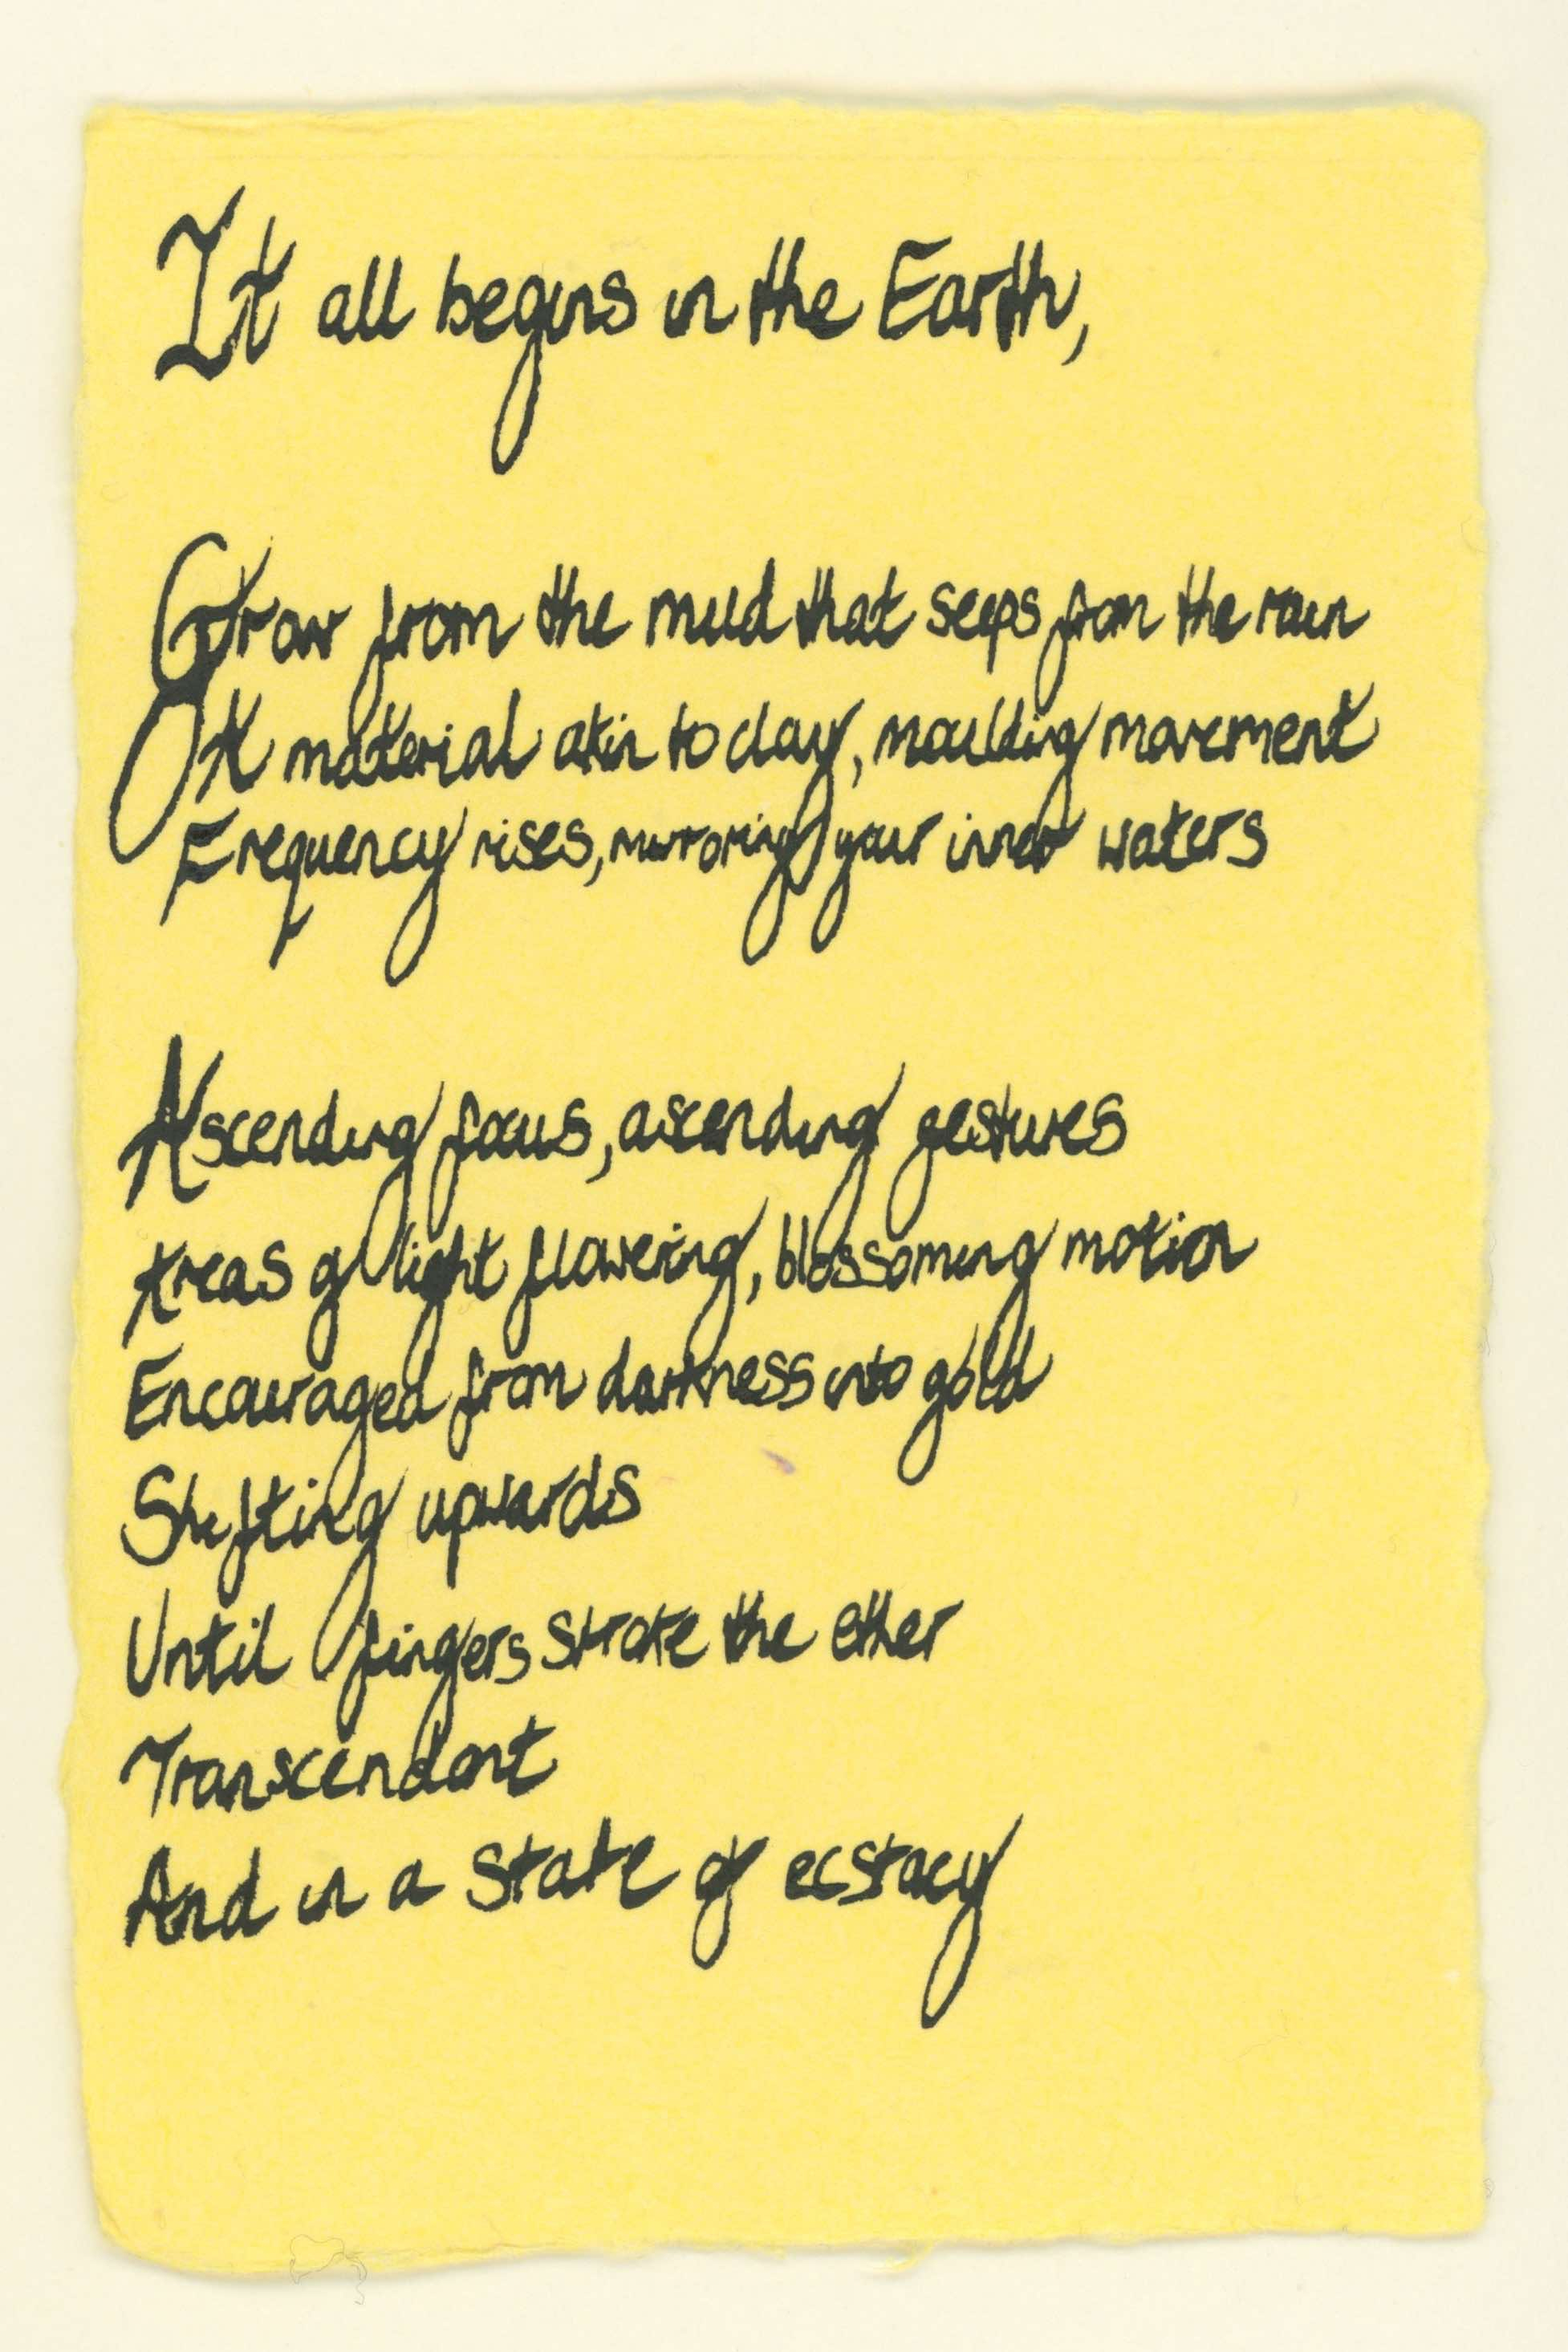 It all begins in the Earth,
Grow from the mud that seeps from the rain
A material akin to clay, moulding movement
Frequency rises, mirroring your inner waters
Ascending focus, ascending gestures
Areas of light flowering, blossoming motion
Encouraged from darkness into gold
Shifting upwards
Until fingers stroke the ether
Transcendant
And in a state of ecstacy